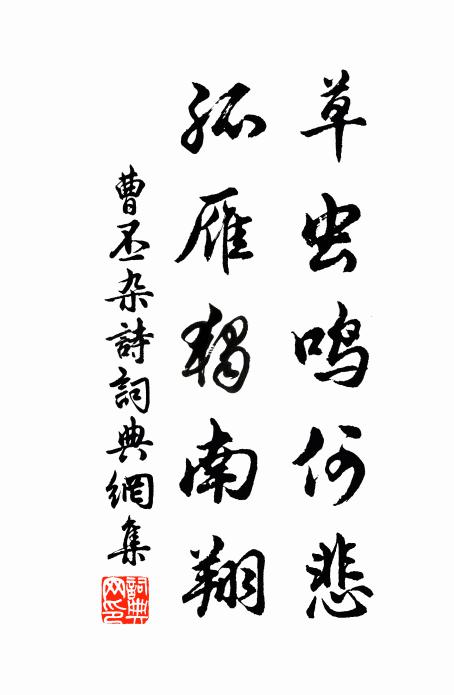 草虫鸣何悲
孤雁独南翔
曹丕杂詩詞典網集
詞典網印